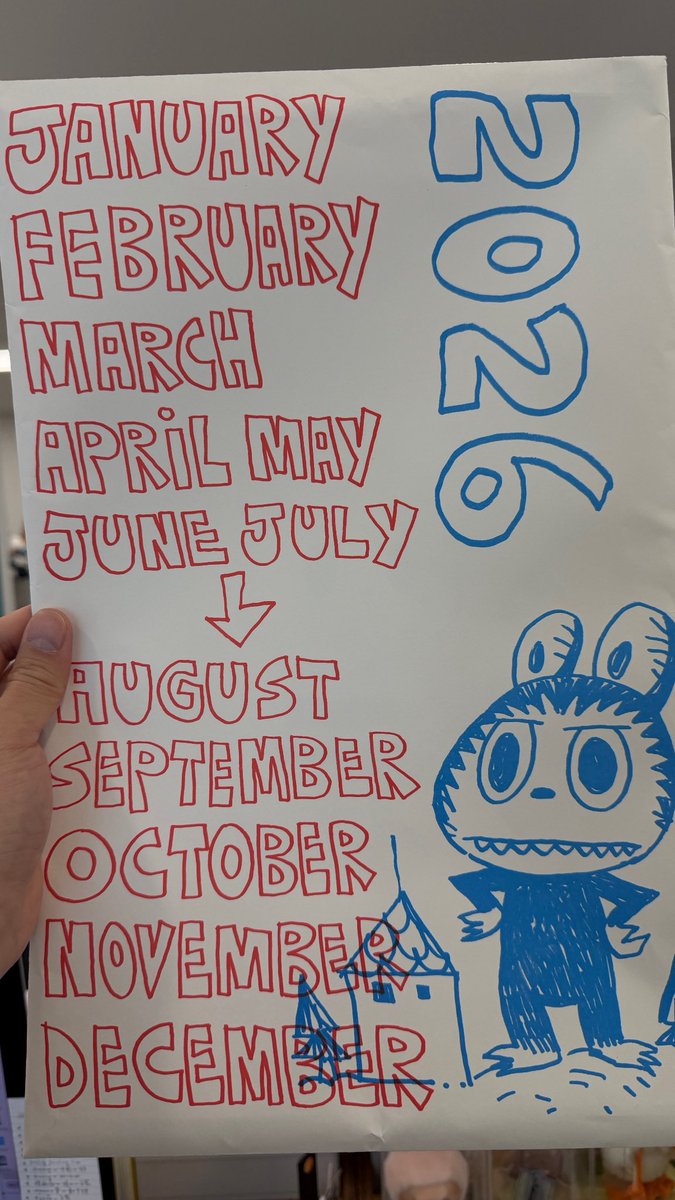 JANUARY
FEBRUARY
MARCH
APRiL MAY
JUNE JULY
AUGUST
SEPTEMBER
OCTOBER
NOVEMBER
DECEMBER
2026